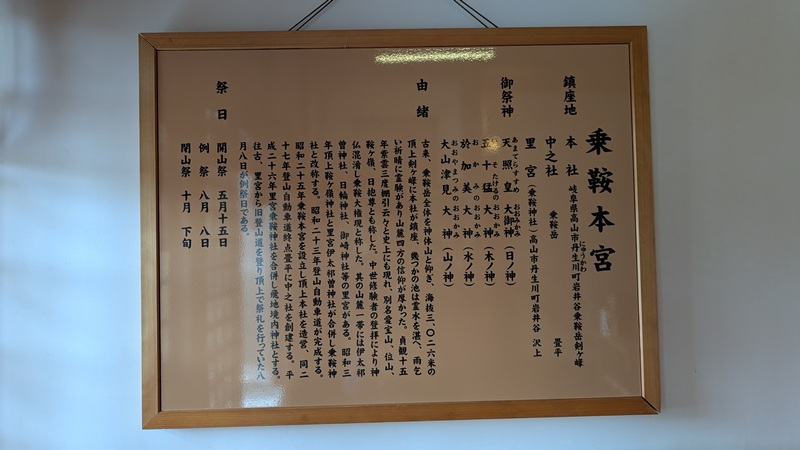 乗鞍本宮
鎮座地 本社 岐阜県高山市丹生川町岩井谷乗鞍岳剣ヶ峰
にゅうかわ
中之社 乗鞍岳 畳平
里宮(乗鞍神社)高山市丹生川町岩井谷 沢上
御祭神 天照皇大御神(日ノ神)
あまてらすすめおおみかみ
五十猛大神(木ノ神)
いそたけるのおおかみ
於加美大神(水ノ神)
おかみのおおかみ
大山津見大神(山ノ神)
おおやまつみのおおかみ
由緒 古来、乗鞍岳全体を神体山と仰ぎ、海抜三、〇二六米の
頂上剣ヶ峰に本社が鎮座、幾つかの池は霊水を湛へ、雨乞
い祈晴に霊験があり山麓四方の信仰が厚かった。貞観十五
年紫雲三度棚引云々と史上にも現れ、別名愛宝山、位山、
鞍ヶ嶺、日抱尊とも称した。中世修験者の登拝により神
仏混淆し乗鞍大権現と称した。其の山麓一帯には伊太祁
曽神社、日輪神社、御崎神社等の里宮がある。昭和三
年頂上鞍ヶ嶺神社と里宮伊太祁曽神社が合併し乗鞍神
社と改称する。昭和二十三年登山自動車道が完成する。
昭和二十五年乗鞍本宮を設立し頂上本社を造営、同二
十七年登山自動車道終点畳平に中之社を創建する。平
成二十六年里宮乗鞍神社を合併し飛地境内神社とする。
往古、里宮から旧登山道を登り頂上で祭礼を行っていた八
月八日が例祭日である。
祭日 開山祭 五月十五日
例祭 八月八日
閉山祭 十月下旬